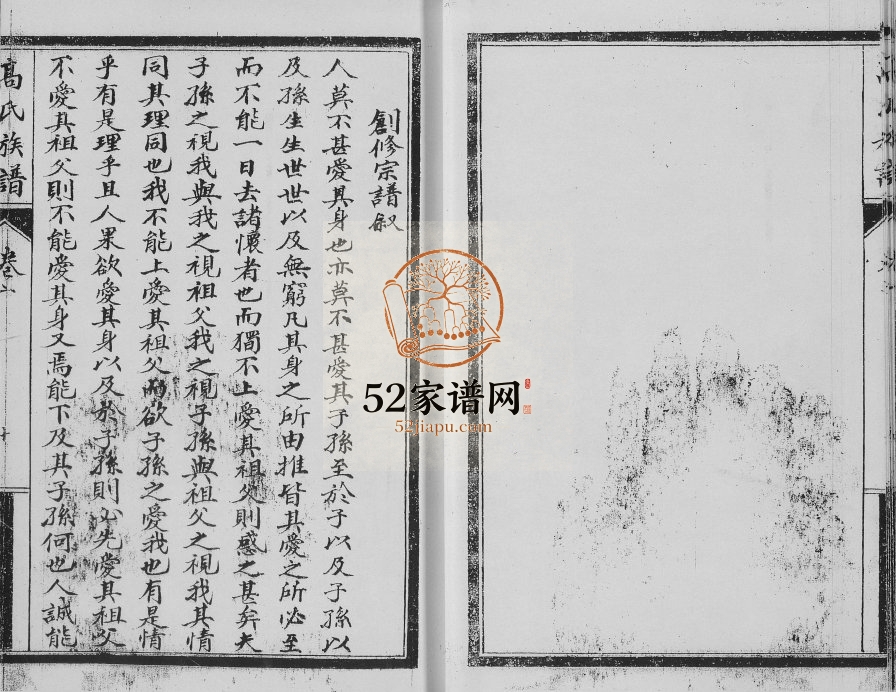 創修宗譜叙
人莫不甚愛其身也亦莫不甚愛其子孫至於子以及子孫以
及孫生生世世以及無窮凡其身之所由推皆其愛之所必至
而不能一日去諸懷者也而獨不上愛其祖父則惑之甚矣夫
子孫之視我與我之視祖父我之視子孫與祖父之視我其情
同其理同也我不能上愛其祖父而欲子孫之愛我也有是情
乎有是理乎且人果欲愛其身以及於子孫則必先愛其祖父
不愛其祖父則不能愛其身又焉能下及其子孫何也人誠能
高氏族譜
卷
52家谱网
52jiapu.com